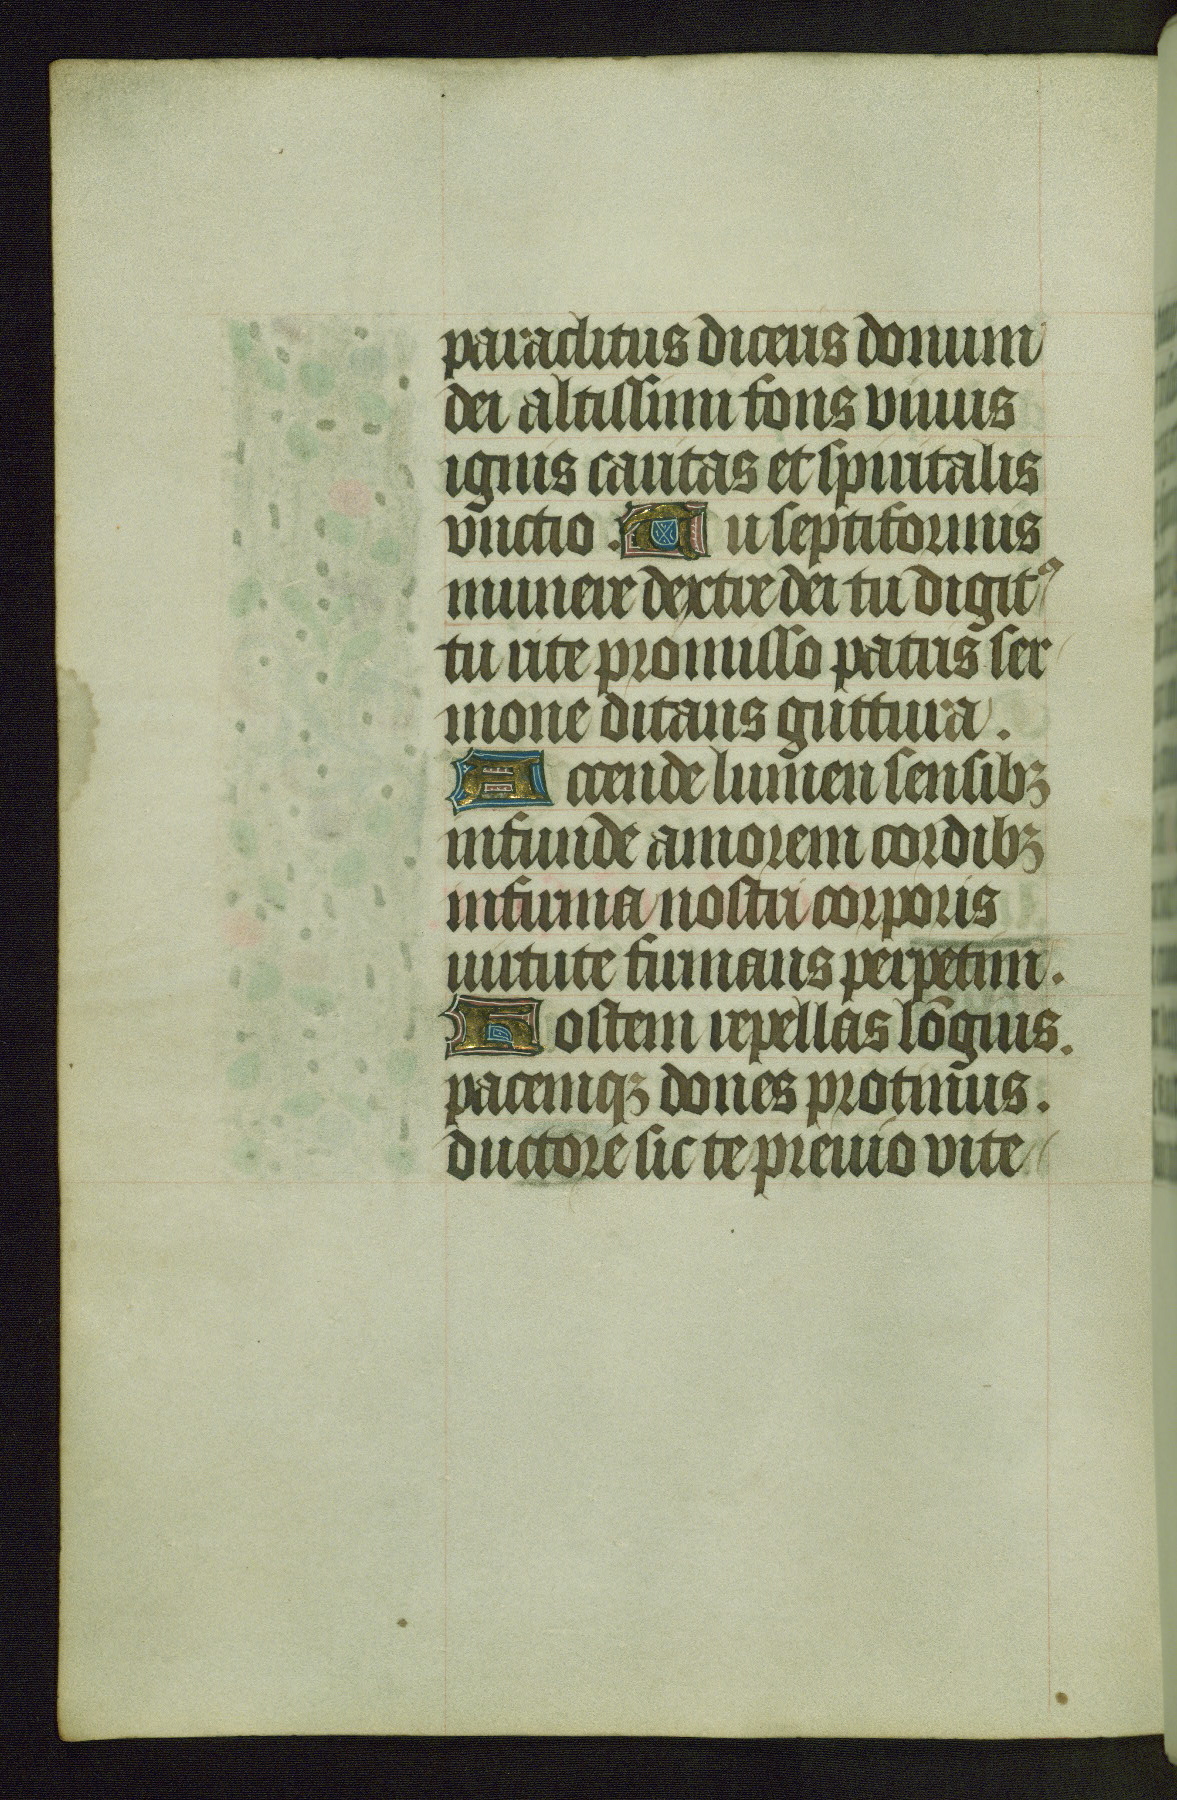 paraclitus diceris donum
dei altissimi fons viuus
ignis caritas et spiritalis
vnctio . Tu septiformis
munere dextre dei tu digitꝰ
tu rite promisso patris ser
mone ditans guttura .
Accende lumen sensibꝫ
infunde amorem cordibꝫ
infirma nostri corporis
uirtute firmans perpetim .
Hostem repellas lōgius .
pacemqꝫ dones protinus .
ductore sic te preuio vite